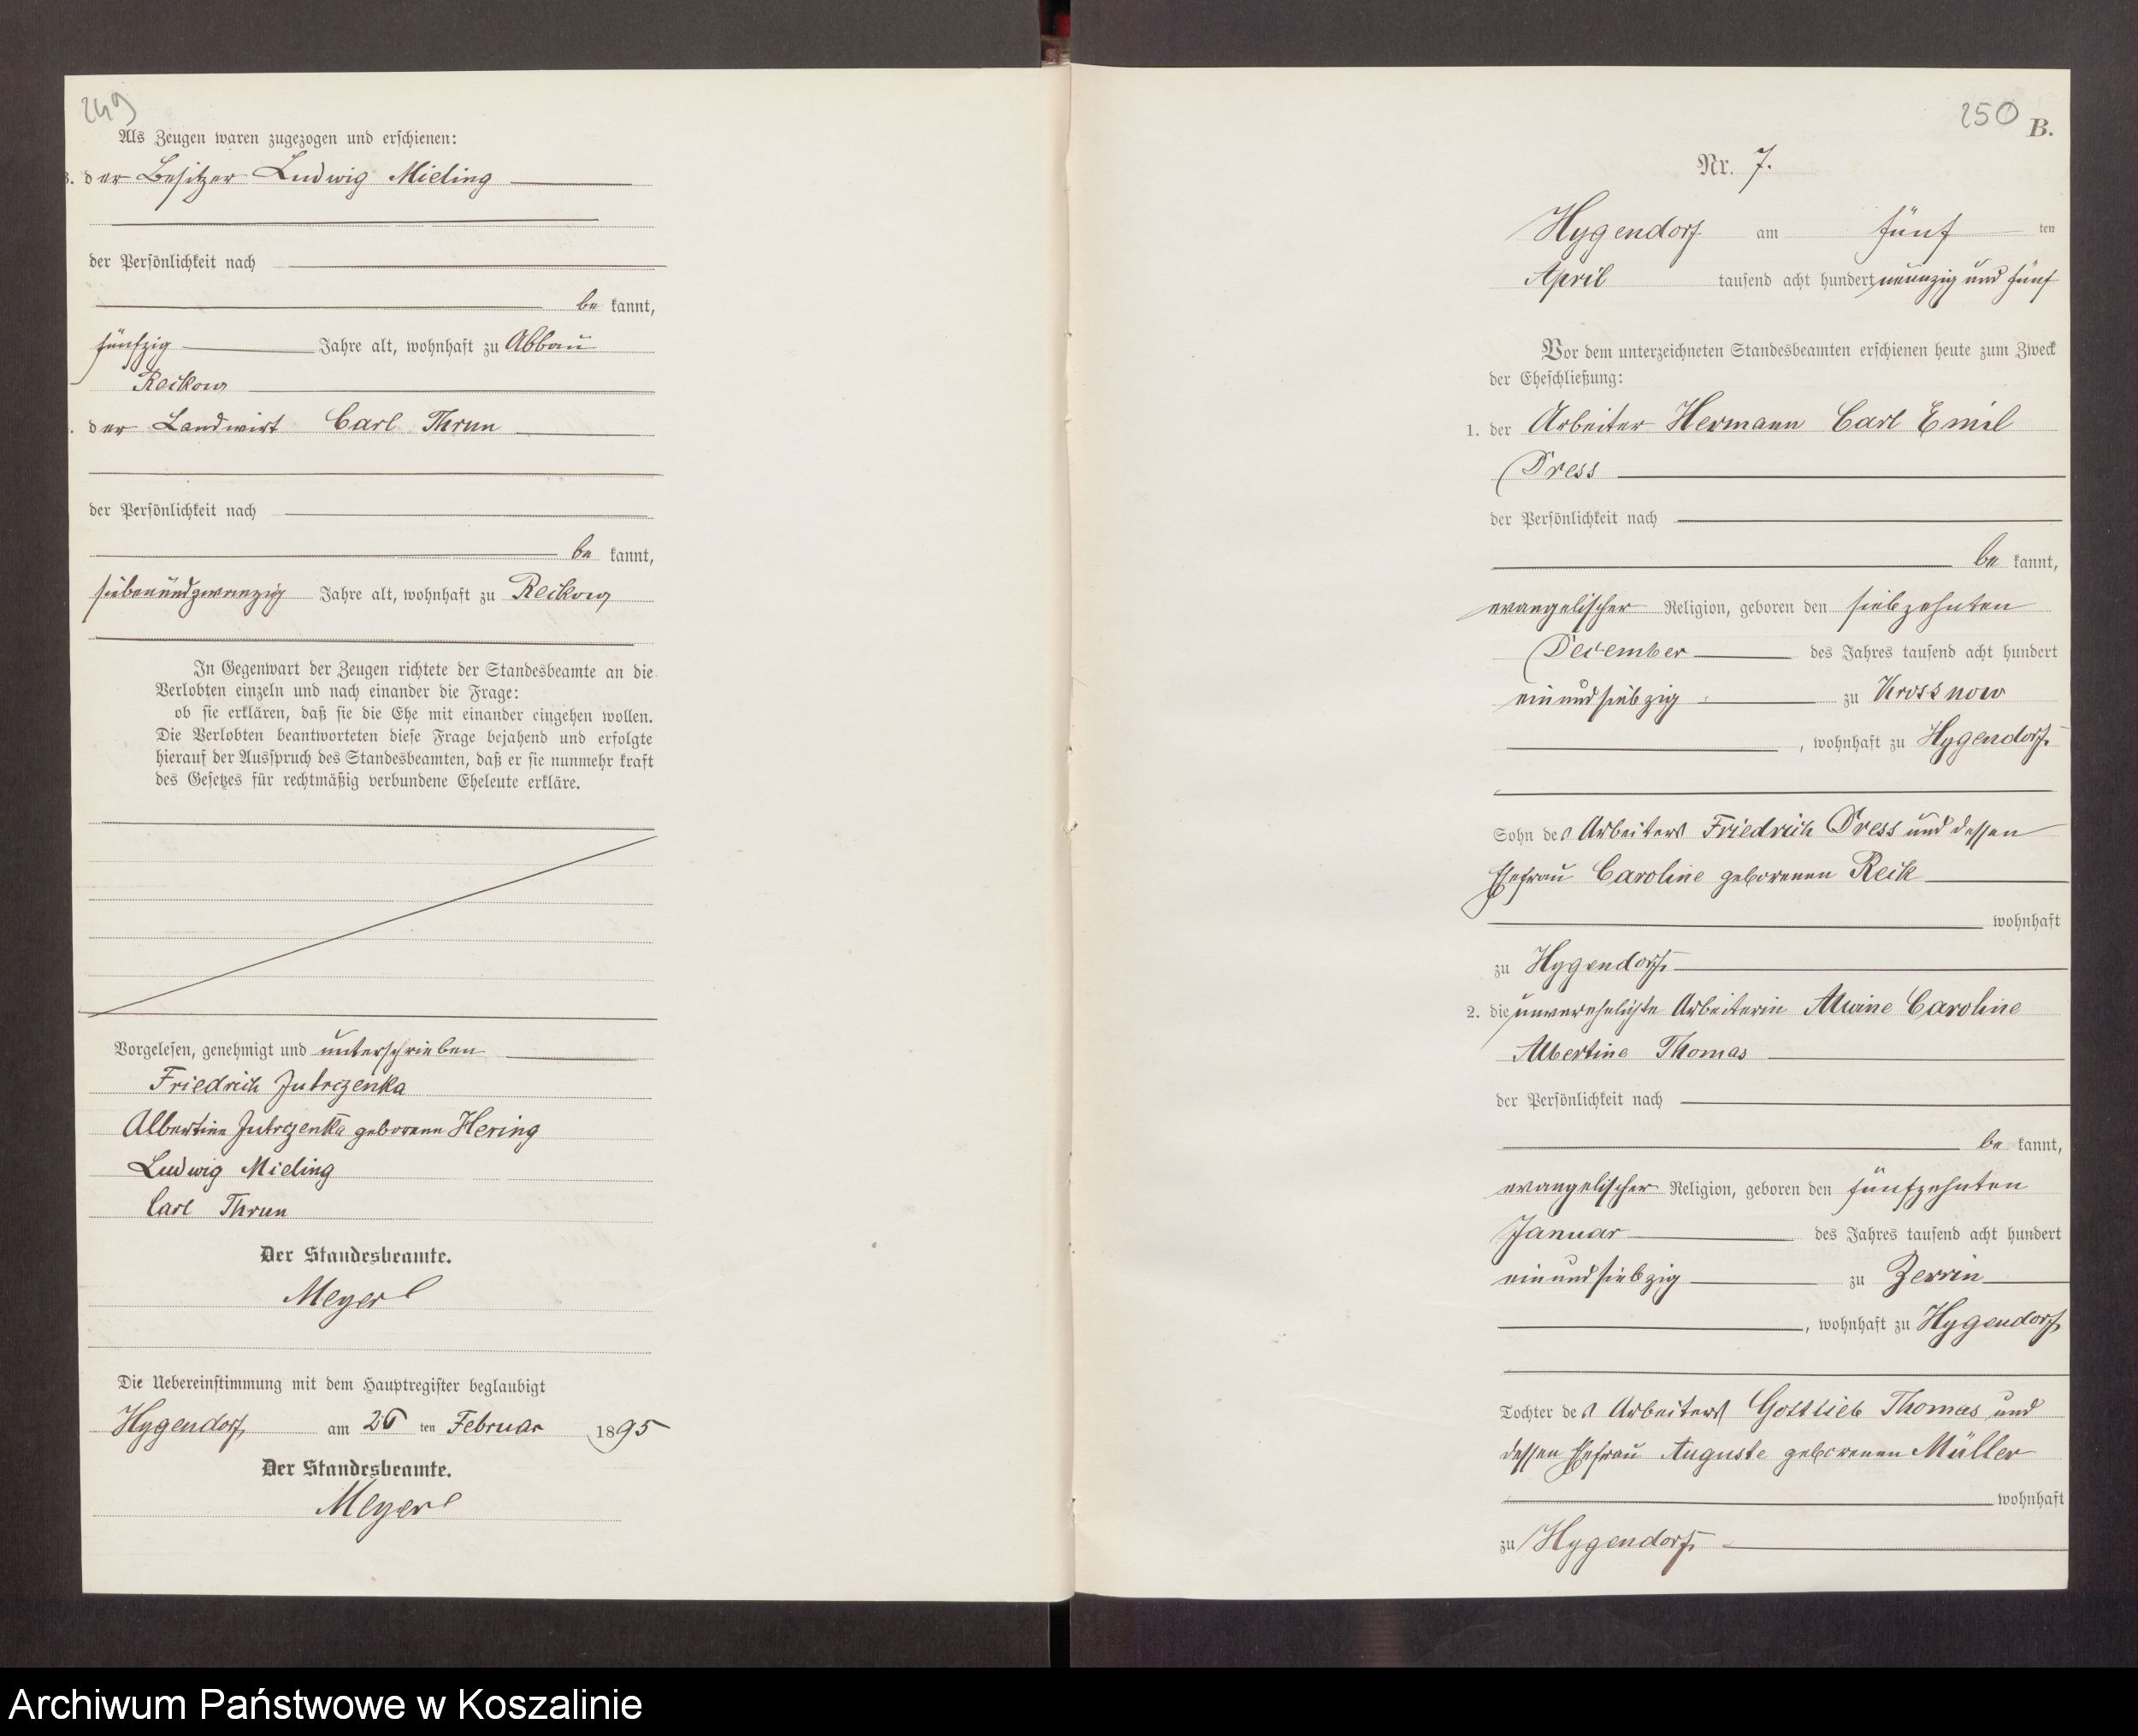 249
Als Zeugen waren zugezogen und erschienen:
3. der Besitzer Ludwig Mieling
der Persönlichkeit nach
be kannt,
fünfzig Jahre alt, wohnhaft zu Abbau
Reikow
. der Landwirt Carl Thrun
der Persönlichkeit nach
be kannt,
siebenundzwanzig Jahre alt, wohnhaft zu Reikow
In Gegenwart der Zeugen richtete der Standesbeamte an die
Verlobten einzeln und nach einander die Frage:
ob sie erklären, daß sie die Ehe mit einander eingehen wollen.
Die Verlobten beantworteten diese Frage bejahend und erfolgte
hierauf der Ausspruch des Standesbeamten, daß er sie nunmehr kraft
des Gesetzes für rechtmäßig verbundene Eheleute erkläre.
Vorgelesen, genehmigt und unterschrieben
Friedrich Jutrzenka
Albertine Jutrzenka geborene Hering
Ludwig Mieling
Carl Thrun
Der Standesbeamte.
Meyer
Die Uebereinstimmung mit dem Hauptregister beglaubigt
Hygendorf am 26 ten Februar 1895
Der Standesbeamte.
Meyer
250
B.
Nr. 7.
Hygendorf am fünf ten
April tausend acht hundert neunzig und fünf
Vor dem unterzeichneten Standesbeamten erschienen heute zum Zweck
der Eheschließung:
1. der Arbeiter Hermann Carl Emil
Dress
der Persönlichkeit nach
be kannt,
evangelischer Religion, geboren den siebzehnten
December des Jahres tausend acht hundert
einundsiebzig zu Krossnow
, wohnhaft zu Hygendorf
Sohn des Arbeiters Friedrich Dress und dessen
Ehefrau Caroline geborenen Reik
wohnhaft
zu Hygendorf
2. die unverehelichte Arbeiterin Alwine Caroline
Albertine Thomas
der Persönlichkeit nach
be kannt,
evangelischer Religion, geboren den fünfzehnten
Januar des Jahres tausend acht hundert
einundsiebzig zu Zerrin
, wohnhaft zu Hygendorf
Tochter des Arbeiters Gottlieb Thomas und
dessen Ehefrau Auguste geborenen Müller
wohnhaft
zu Hygendorf
Archiwum Państwowe w Koszalinie